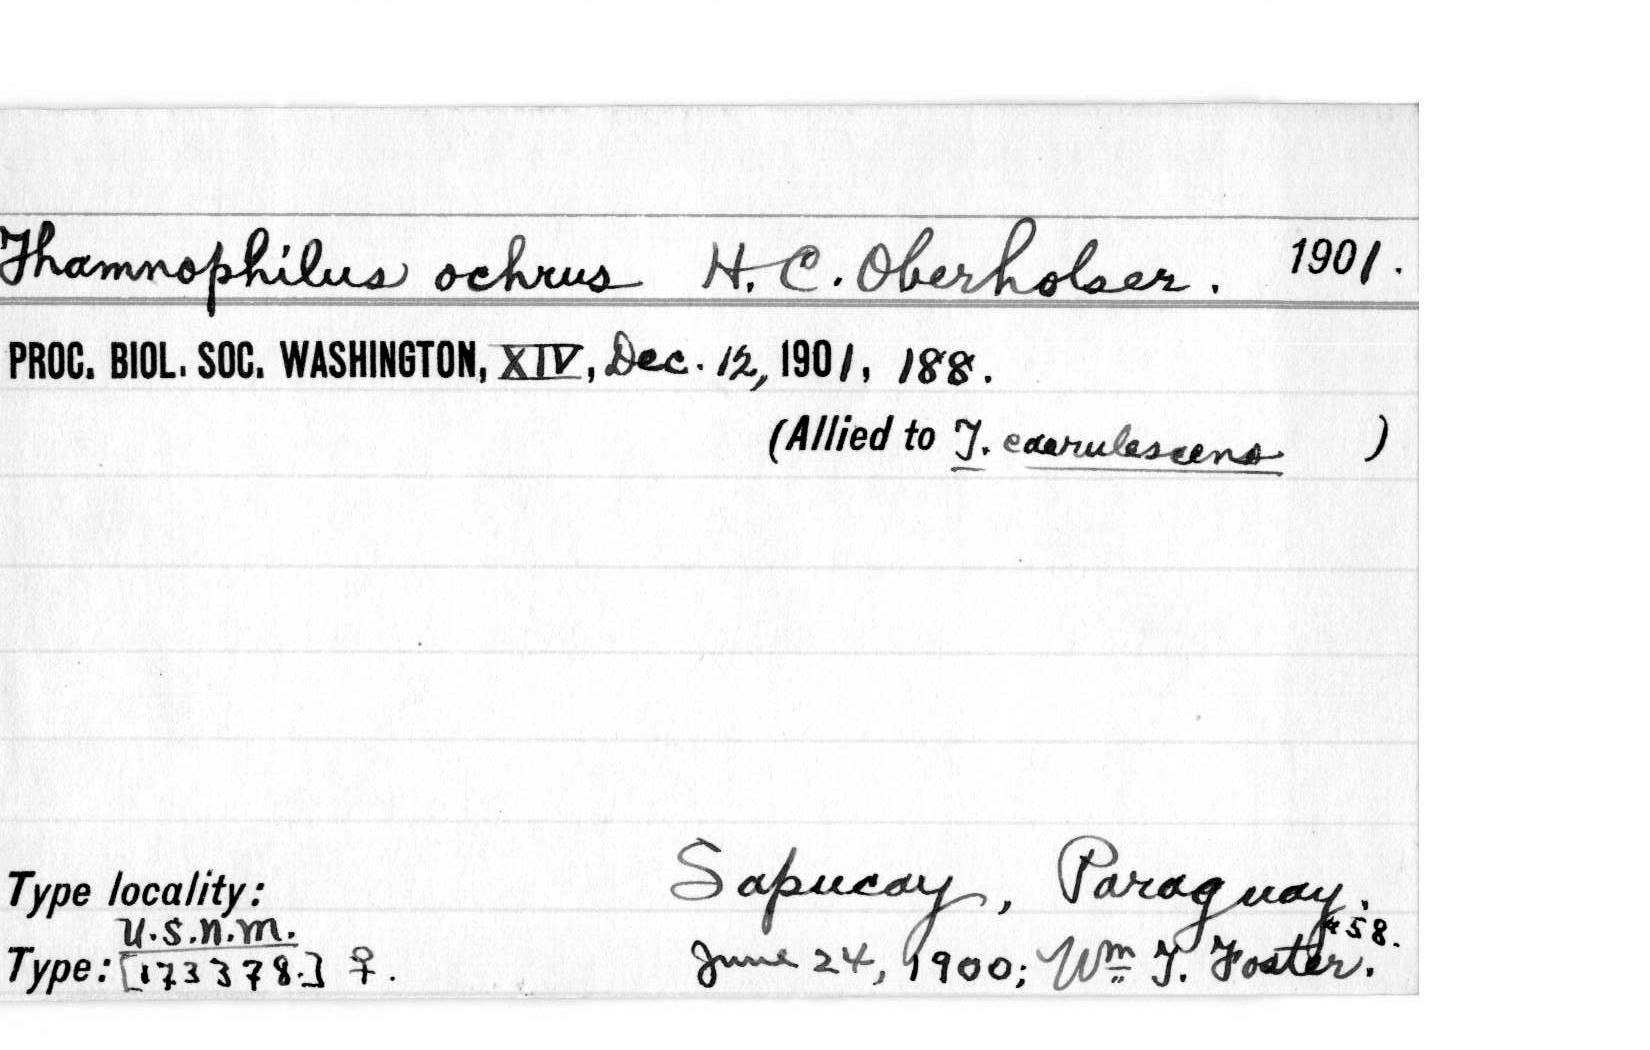 Thamnophilus ochrus H. C. Oberholser. 1901.
PROC. BIOL. SOC. WASHINGTON, XIV, Dec. 12, 1901, 188.
(Allied to T. caerulescens )
Type locality: Sapucay, Paraguay.
U.S.N.M. #58.
Type: [173378.] ♀. June 24, 1900; Wm T. Foster.